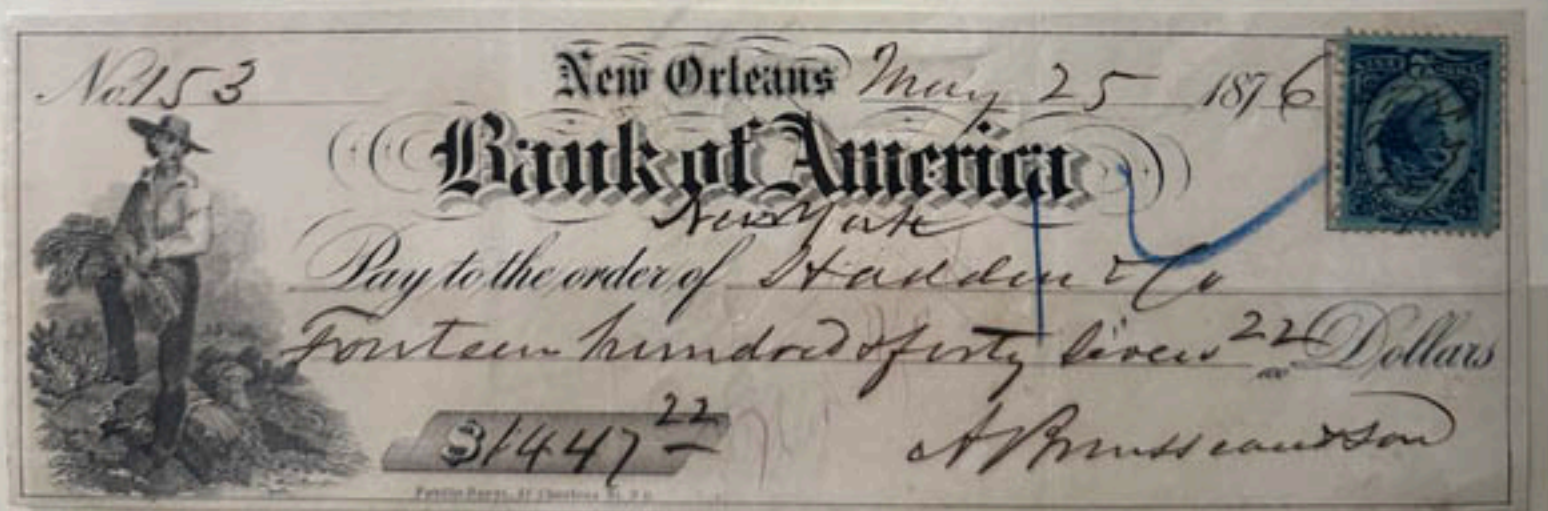 No. 153 New Orleans May 25 1876
Bank of America
New York
Pay to the order of Hadden & Co
Fourteen hundred & forty seven 22/100 Dollars
$1447 22
A Brousseau & Son